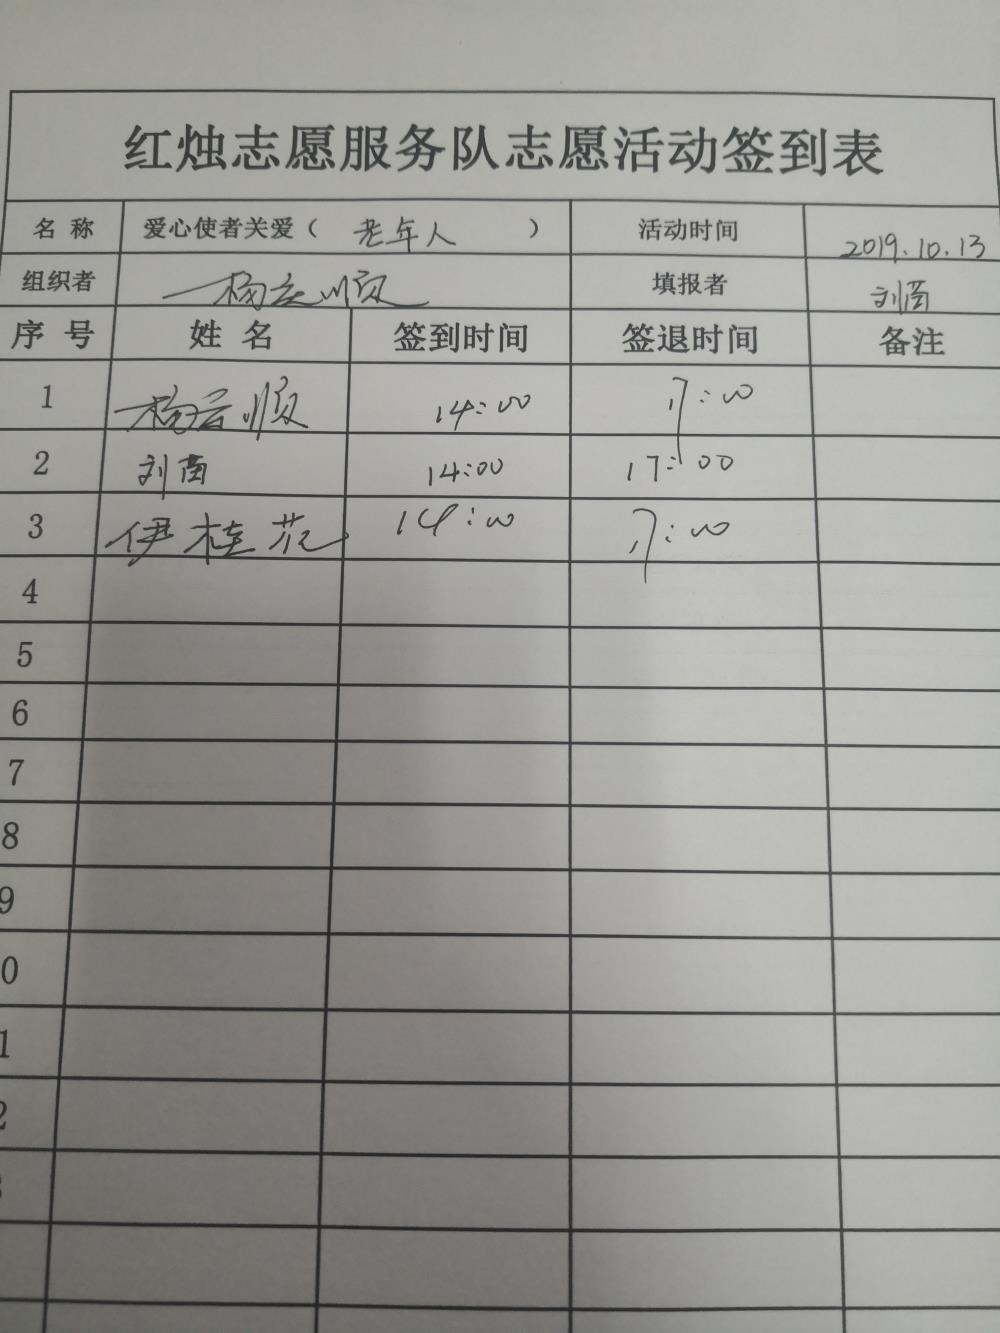 红烛志愿服务队志愿活动签到表
名 称 爱心使者关爱（ 老年人 ） 活动时间 2019.10.13
组织者 杨云顺 填报者 刘茵
序 号 姓 名 签到时间 签退时间 备注
1 杨云顺 14:00 17:00
2 刘茵 14:00 17:00
3 伊桂花 14:00 17:00
4
5
6
7
8
9
0
1
2
3